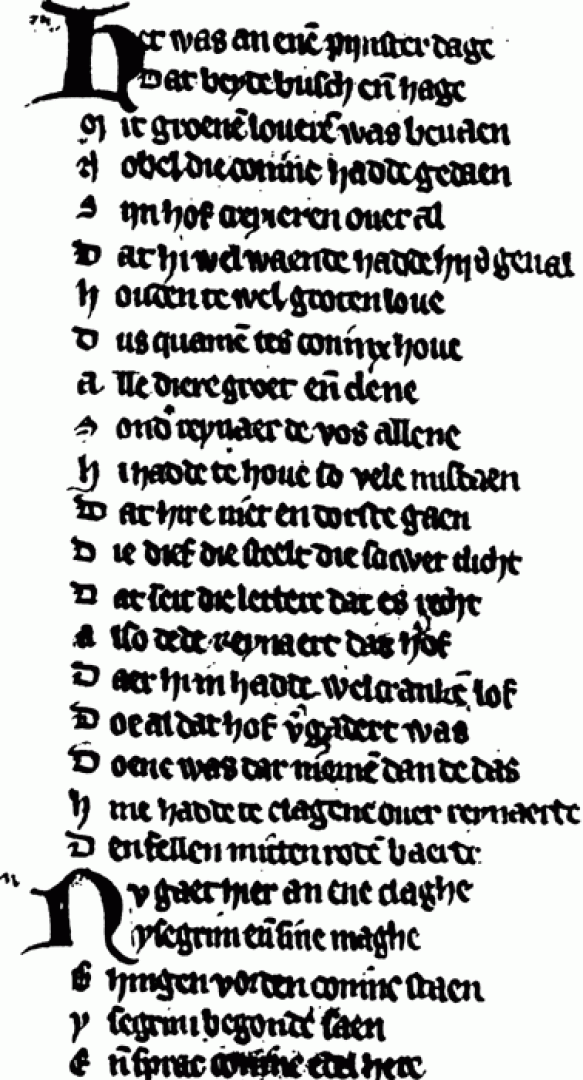 Het was an enē pijnster dage
Dat beyde busch eñ hage
Mit groenē louerē was beuaen
Nobel die coninc hadde gedaen
Sijn hof creyieren ouer al
Dat hi wel waende hadde hijs geual
Houden te wel groten loue
Dus quamē tes coninx houe
Alle diere groet eñ clene
Sond' reynaert de vos allene
Hi hadde te houe so vele misdaen
Dat hire niet en dorste gaen
Die dief die steelt die scuwet dicht
Dat seit die lettere dat es recht
Also dede reynaert das hof
Daer hi in hadde wel crankē lof
Doe al dat hof v'gadert was
Doene was dar niemē dan de das
Hine hadde te clagene ouer reynaerde
Den fellen mitten rotē baerde
Nv gaet hier an ene claghe
Ysegrim eñ sine maghe
Ghingen vor den coninc staen
Ysegrim begondē saen
Eñ sprac coninc edel here